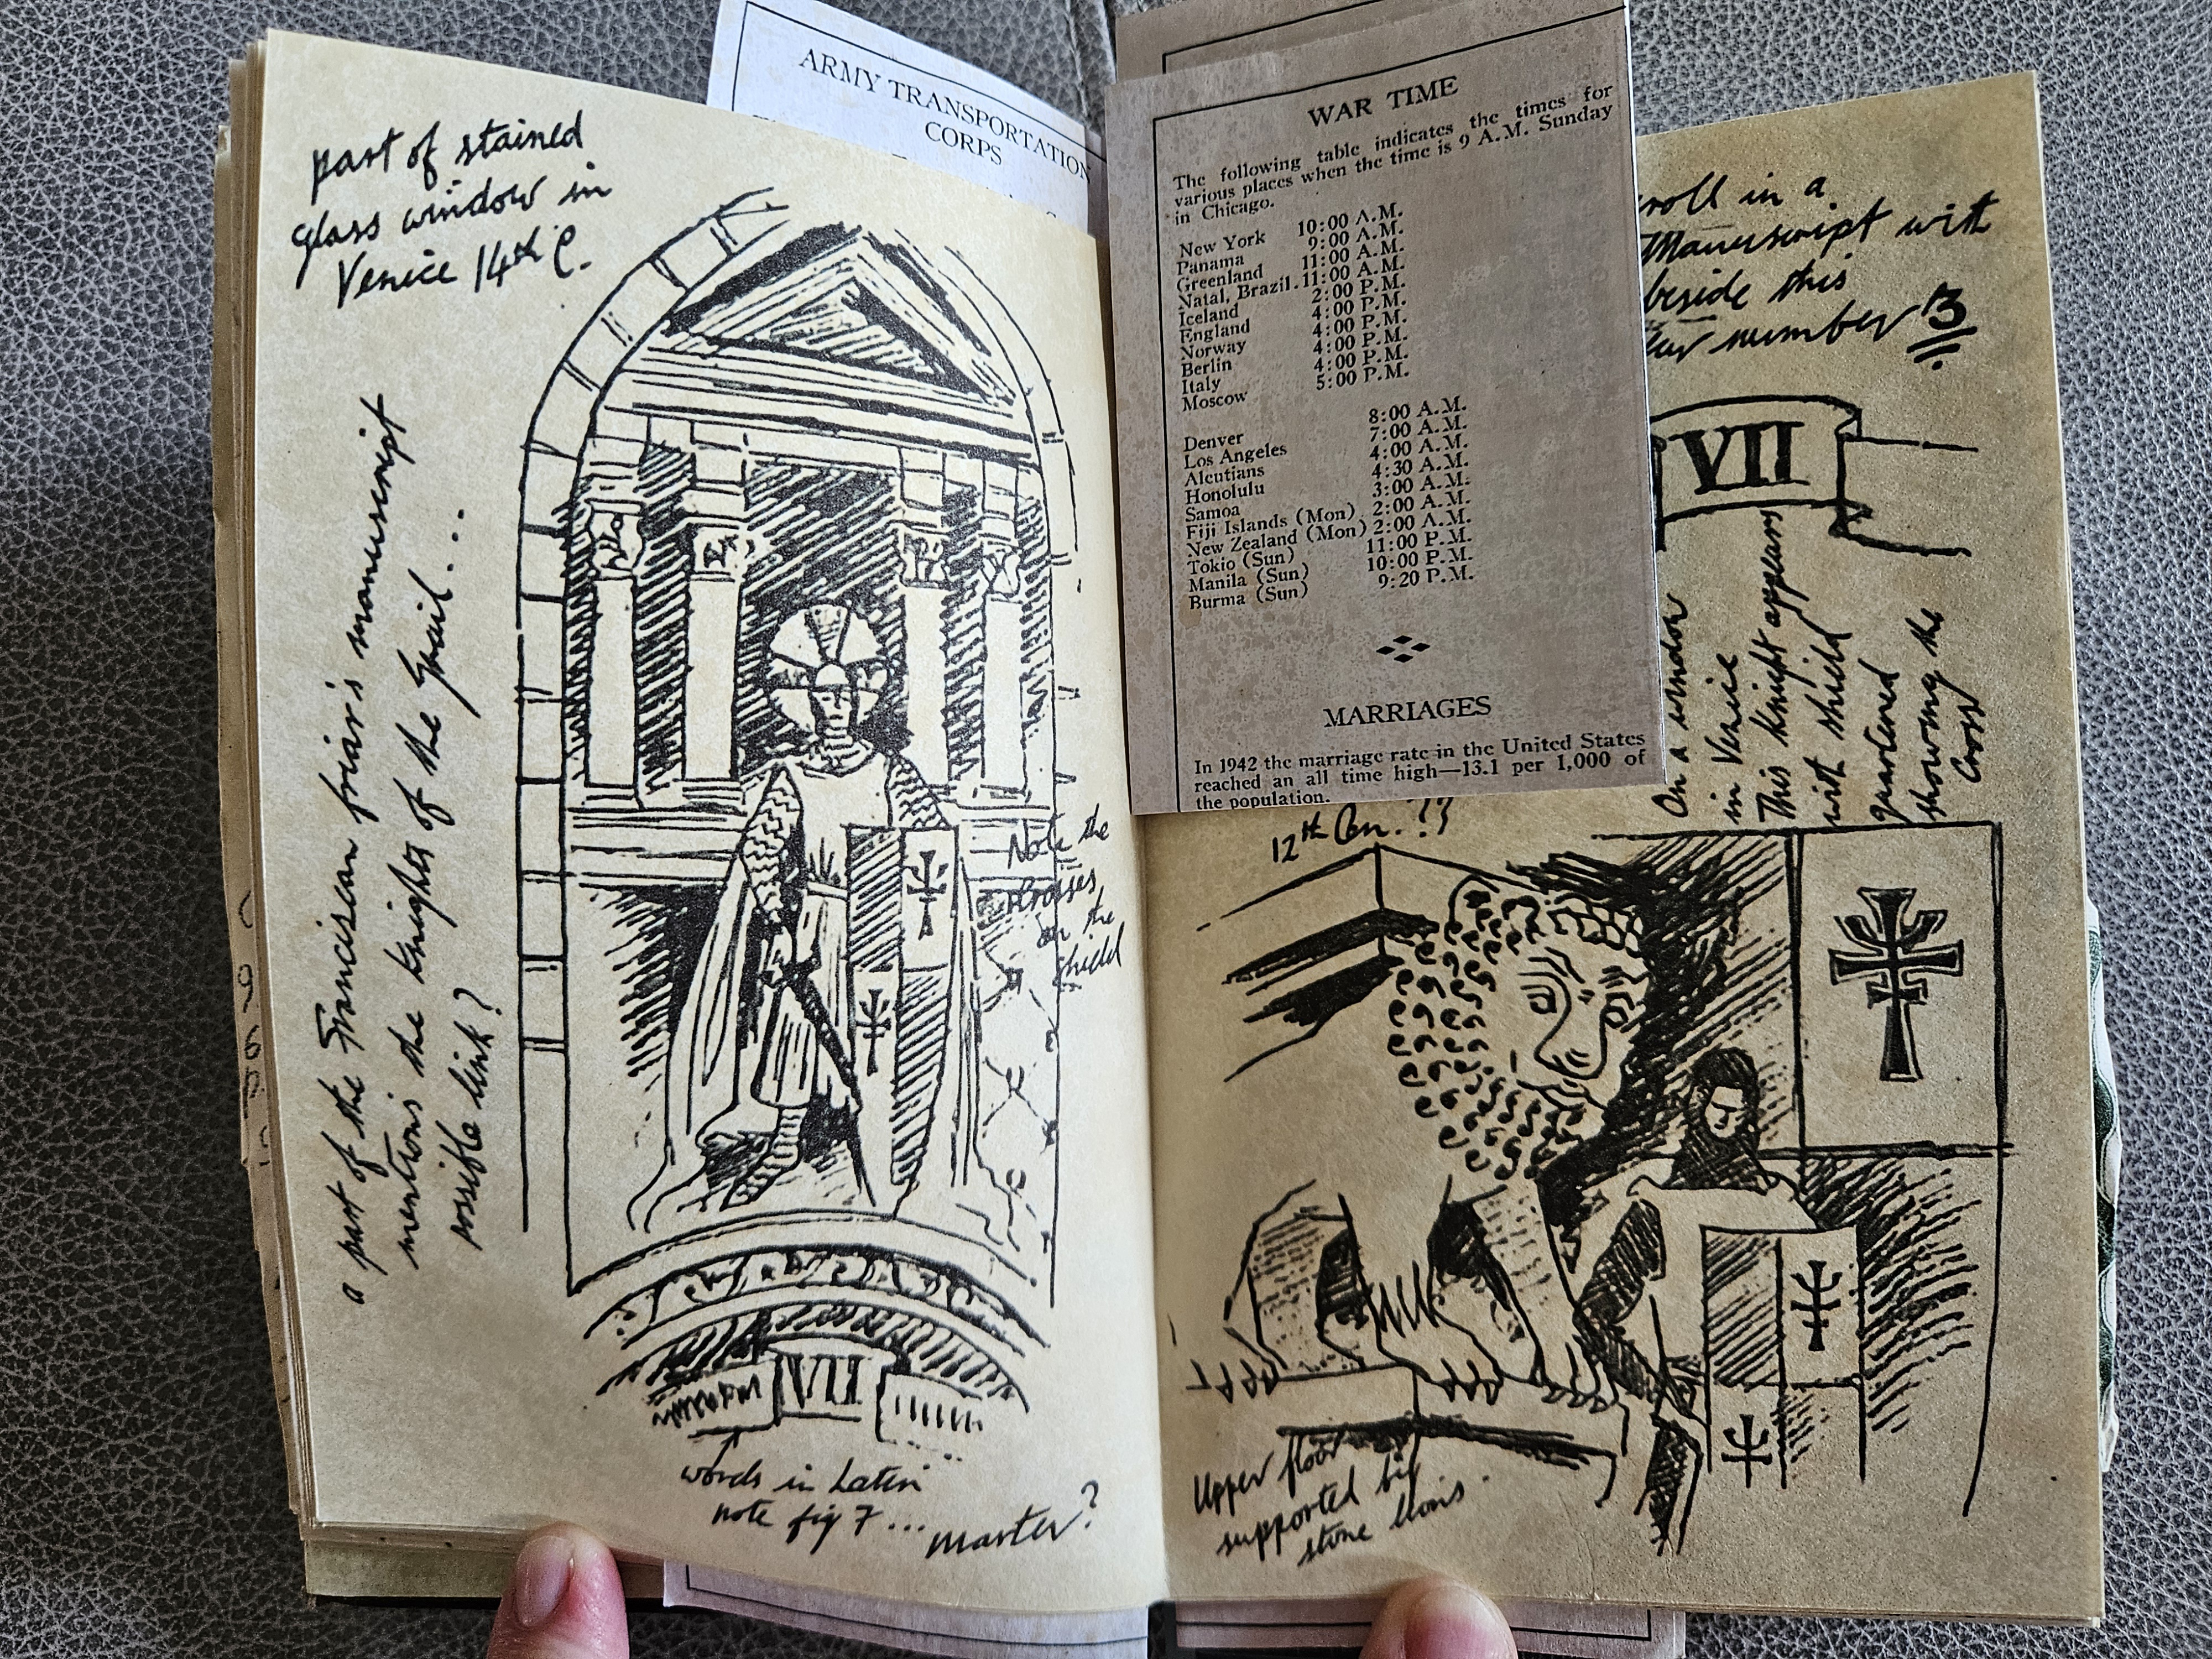 part of stained
glass window in
Venice 14th C.
a part of the Franciscan friar's manuscript
mentions the knights of the Grail...
possible link?
Note the
crosses
on the
shield
VII
words in Latin
note fig 7... master?
ARMY TRANSPORTATION
CORPS
WAR TIME
The following table indicates the times for
various places when the time is 9 A.M. Sunday
in Chicago.
New York 10:00 A.M.
Panama 9:00 A.M.
Greenland 11:00 A.M.
Natal, Brazil. 11:00 A.M.
Iceland 2:00 P.M.
England 4:00 P.M.
Norway 4:00 P.M.
Berlin 4:00 P.M.
Italy 4:00 P.M.
Moscow 5:00 P.M.
Denver 8:00 A.M.
Los Angeles 7:00 A.M.
Aleutians 4:00 A.M.
Honolulu 4:30 A.M.
Samoa 3:00 A.M.
Fiji Islands (Mon) 2:00 A.M.
New Zealand (Mon) 2:00 A.M.
Tokio (Sun) 11:00 P.M.
Manila (Sun) 10:00 P.M.
Burma (Sun) 9:20 P.M.
MARRIAGES
In 1942 the marriage rate in the United States
reached an all time high—13.1 per 1,000 of
the population.
roll in a
Manuscript with
beside this
number 3
VII
On a window
in Venice
This knight appears
with shield
quartered
showing the
Cross
12th Cen. ??
Upper floor
supported by
stone lions.